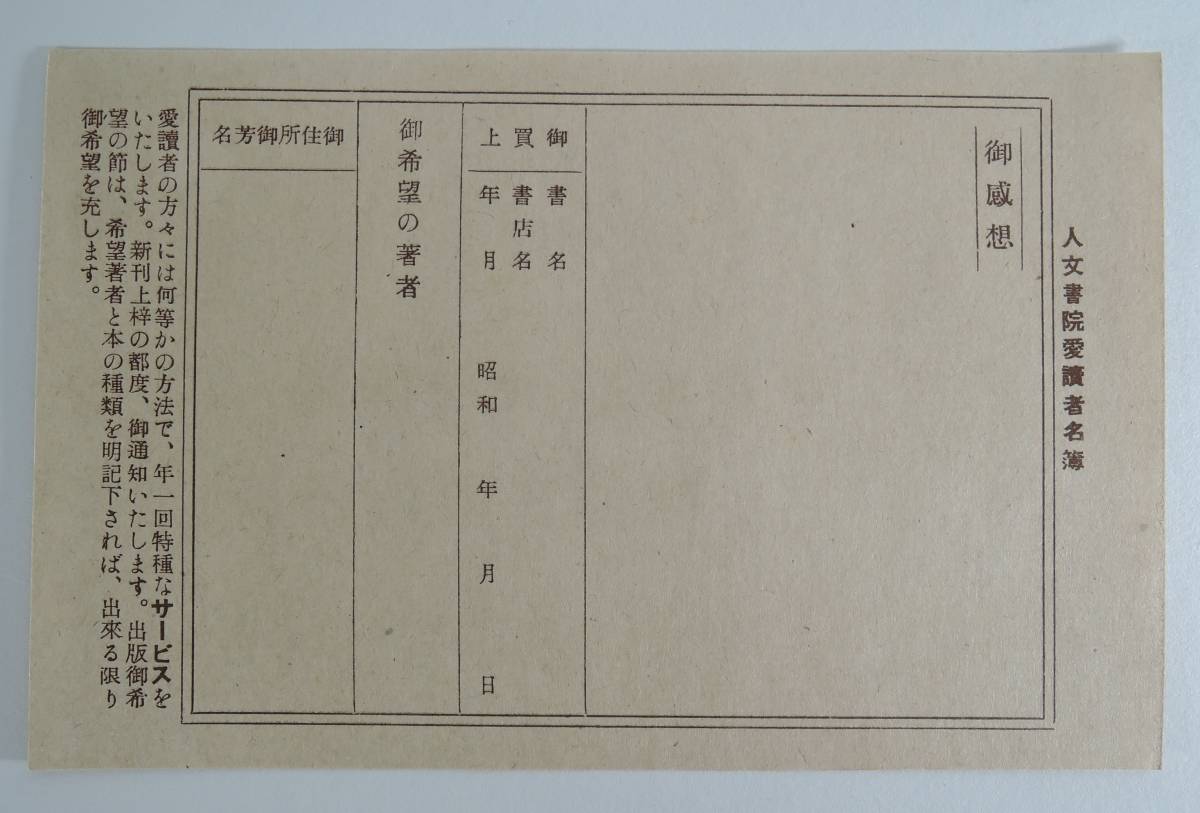 人文書院愛讀者名簿
御感想
御書名
買書店名
上年月 昭和 年 月 日
御希望の著者
御住所御芳名
愛讀者の方々には何等かの方法で、年一回特種なサービスを
いたします。新刊上梓の都度、御通知いたします。出版御希
望の節は、希望著者と本の種類を明記下されば、出來る限り
御希望を充します。